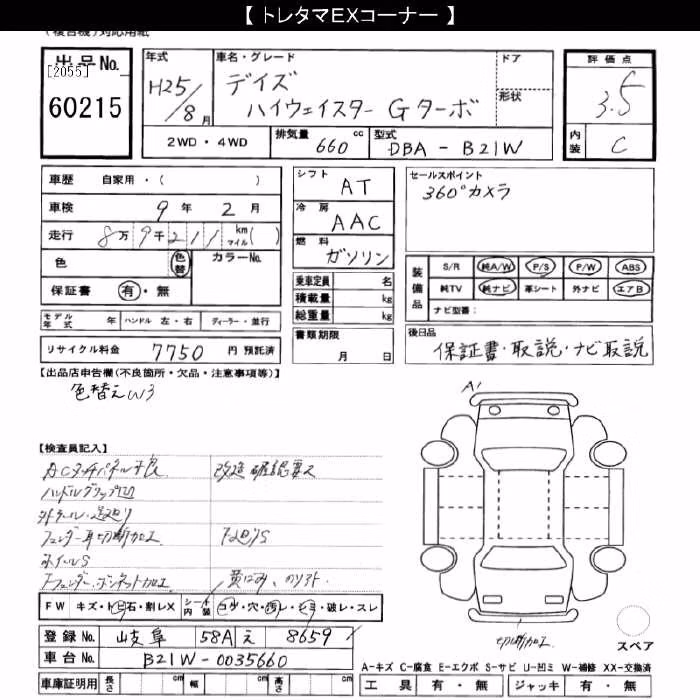 【 トレタマEXコーナー 】
(複合機)対応用紙
出品No.
[2055]
60215
年式
H25/8月
車名・グレード
デイズ
ハイウェイスター Gターボ
ドア
形状
2WD・4WD
排気量 660 cc
型式 DBA - B21W
評価点
3.5
内装 C
車歴 自家用・( )
車検 9年 2月
走行 8万9千211 km マイル( )
色 色替 カラーNo.
保証書 有・無
モデル年式 年 ハンドル 左・右 ディーラー・並行
リサイクル料金 7750 円 預託済
シフト AT
冷房 AAC
燃料 ガソリン
乗車定員 名
積載量 kg
総重量 kg
書類期限
月 日
セールスポイント
360°カメラ
装備品
S/R 純A/W P/S P/W ABS
純TV 純ナビ 革シート 外ナビ エアB
ナビ型番:
後日品
保証書・取説・ナビ取説
【出品店申告欄(不良箇所・欠品・注意事項等)】
色替えW3
A1
【検査員記入】
ACタッチパネル不良 改造確認要ス
ハンドルグリップ凹
フェンダー耳切断加工 下廻りS
ホイルS
Fフェンダー、ボンネット加工
FW キズ・トビ石・割レX シート内装 コゲ・穴・汚レ・シミ・破レ・スレ
登録No. 岐阜 58A え 8659
車台No. B21W-0035660
車庫証明用 長さ cm 幅 cm 高さ cm
切断加工
スペア
A-キズ C-腐食 E-エクボ S-サビ U-凹ミ W-補修 XX-交換済
工具 有・無 ジャッキ 有・無